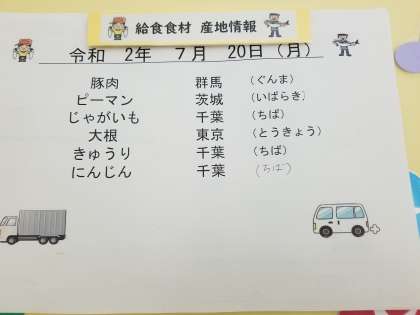 給食食材 産地情報
令和 2年 7月 20日（月）
豚肉 群馬 （ぐんま）
ピーマン 茨城 （いばらき）
じゃがいも 千葉 （ちば）
大根 東京 （とうきょう）
きゅうり 千葉 （ちば）
にんじん 千葉 （ちば）